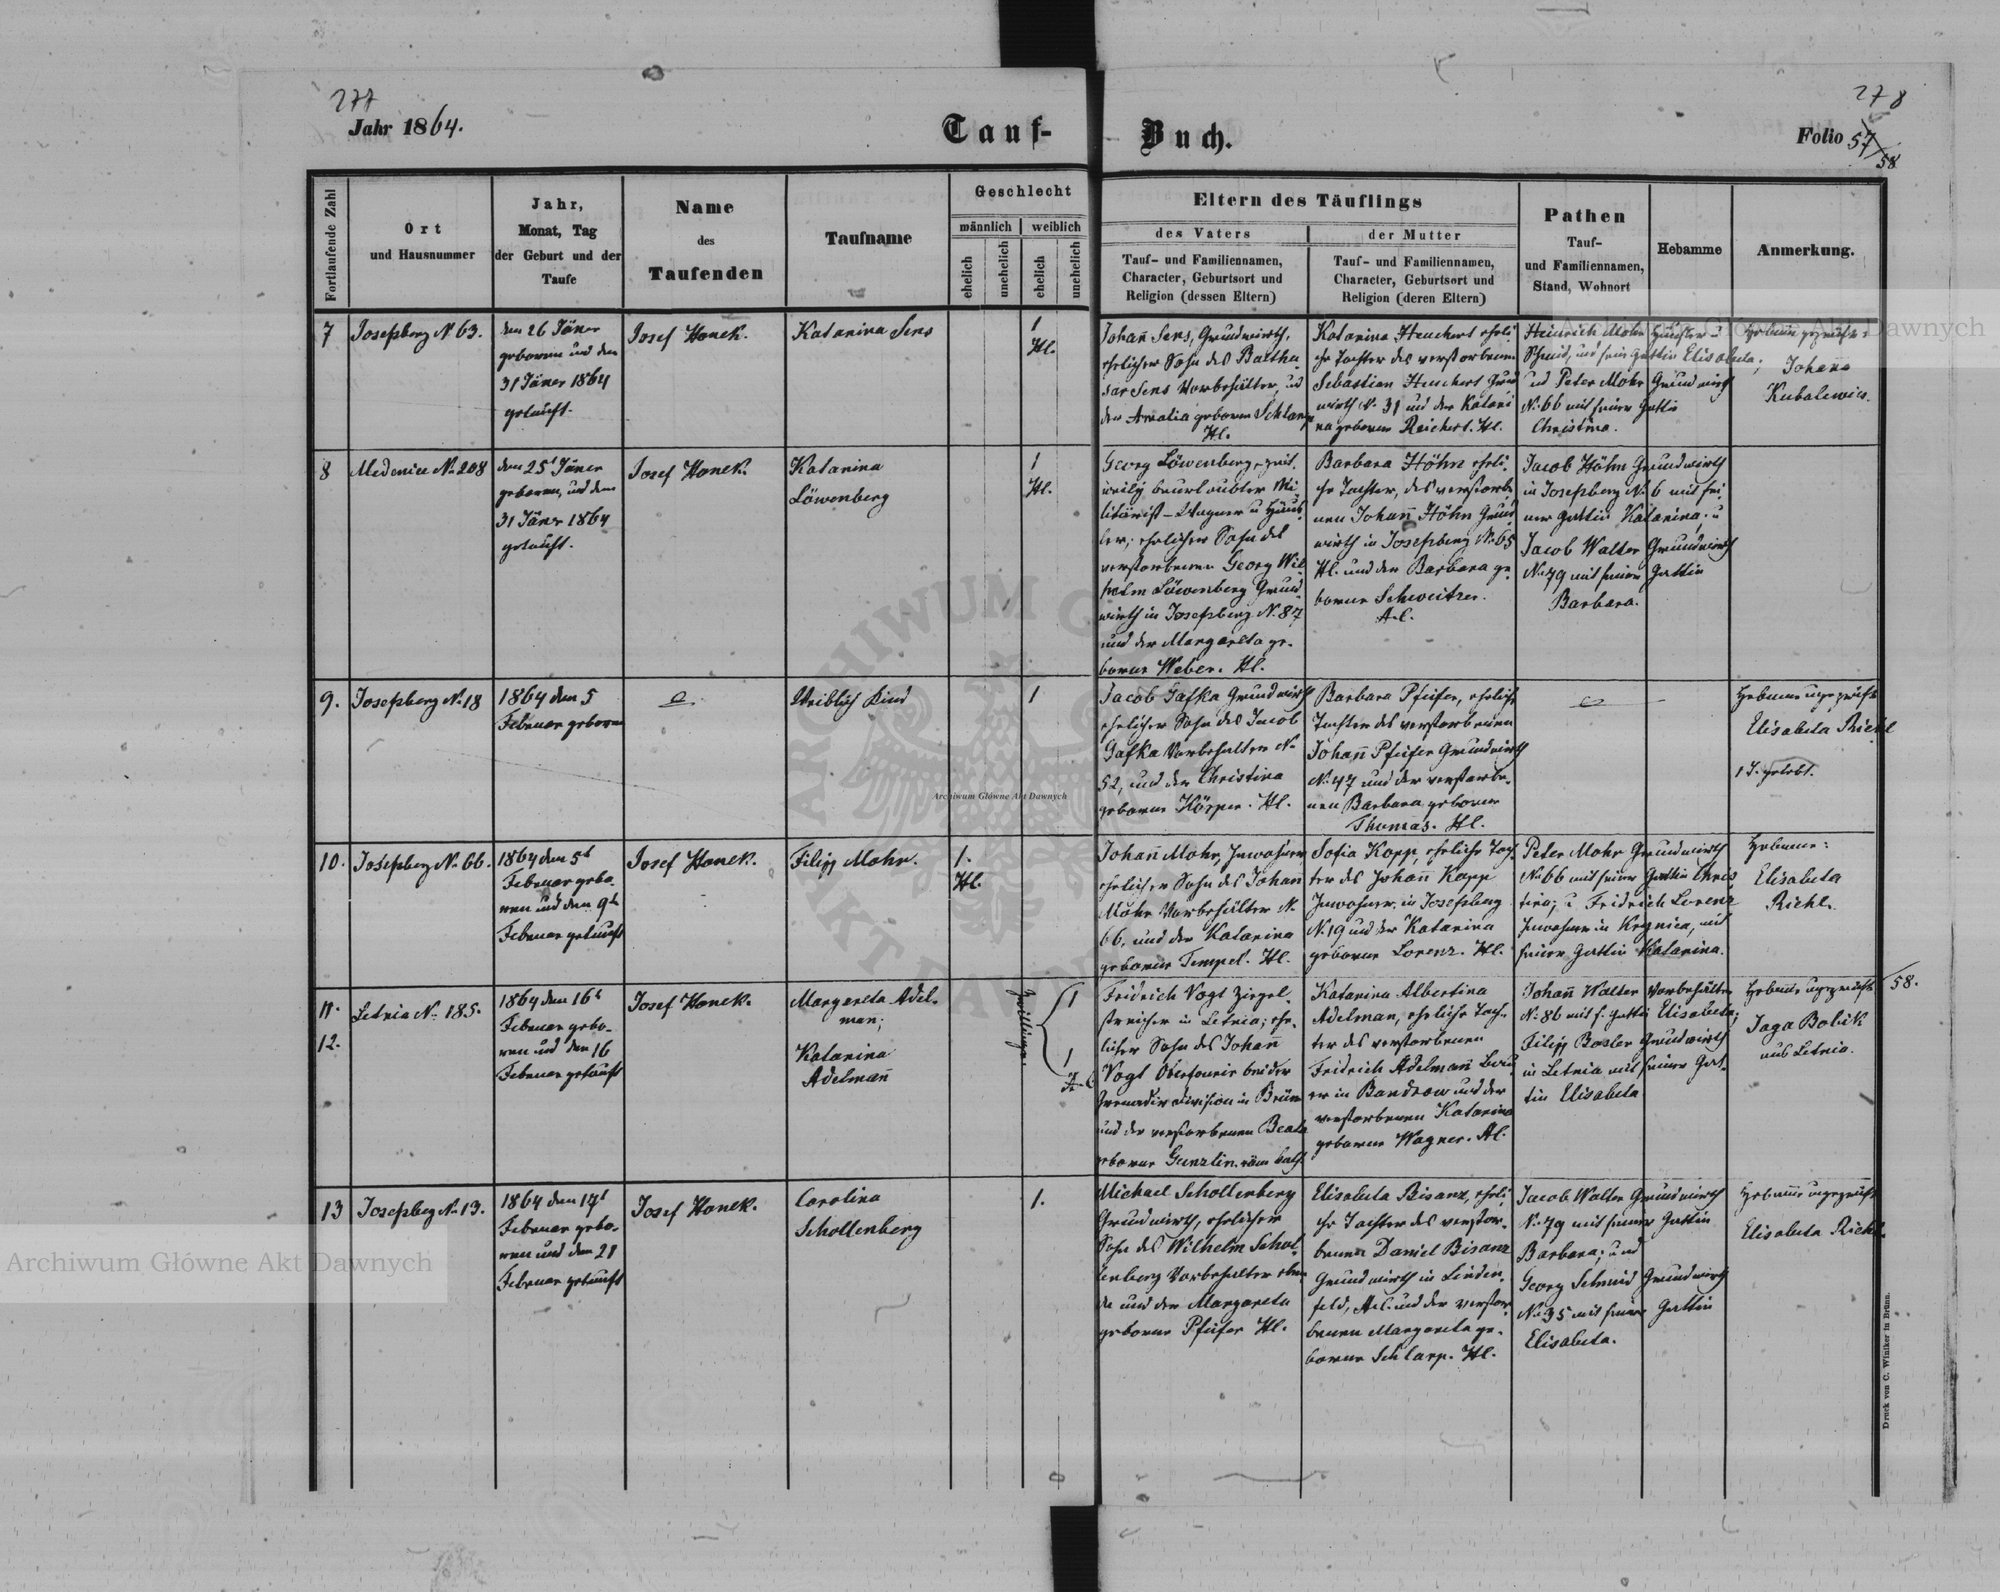 277
278
Jahr 1864.
Tauf-Buch.
Folio 57
58
Fortlaufende Zahl
Ort
und Hausnummer
Jahr,
Monat, Tag
der Geburt und der
Taufe
Name
des
Taufenden
Taufname
Geschlecht
männlich
weiblich
ehelich
unehelich
ehelich
unehelich
Eltern des Täuflings
des Vaters
Tauf- und Familiennamen,
Character, Geburtsort und
Religion (dessen Eltern)
der Mutter
Tauf- und Familiennamen,
Character, Geburtsort und
Religion (deren Eltern)
Pathen
Tauf-
und Familiennamen,
Stand, Wohnort
Hebamme
Anmerkung.
7
Josefsberg N. 63.
den 26 Jäner
geboren und den
31 Jäner 1864
getauft.
Josef Honek.
Katarina Sens
1
Hl.
Johann Sens, Grundwirth,
ehelicher Sohn des Baltha
sar Sens Vorbehälter, und
der Amalia geborne Schlarp
Hl.
Katarina Heuchert eheli
che Tochter des verstorbenen
Sebastian Heuchert Grund
wirth N. 31 und der Katari
na geborne Reichert. Hl.
Heinrich Mohr Häusler u
Schmid, und seine Gattin Elisabeta;
und Peter Mohr Grundwirth
N. 66 mit seiner Gattin
Christina.
Johanna
Kubalewicz.
8
Medenice N. 208
den 25t Jäner
geboren, und den
31 Jäner 1864
getauft.
Josef Honek.
Katarina
Löwenberg
1
Hl.
Georg Löwenberg, zeit,
weilig beurlaubter Mi
litärist - Wagner u Häus,
ler; ehelicher Sohn des
verstorbenen Georg Wil
helm Löwenberg Grund,
wirth in Josefsberg N. 87
und der Margareta ge,
borne Weber. Hl.
Barbara Höhn eheli,
che Tochter, des verstorbe
nen Johann Höhn Grund
wirth in Josefsberg N. 65
Hl. und der Barbara ge,
borne Schweitzer.
A.C.
Jacob Höhn Grundwirth
in Josefsberg N. 6 mit sei
ner Gattin Katarina; u
Jacob Walter Grundwirth
N. 79 mit seiner Gattin
Barbara.
9.
Josefsberg N. 18
1864 den 5
Februar geboren
Weiblich Kind
1
Jacob Gafka Grundwirth
ehelicher Sohn des Jacob
Gafka Vorbehalter N.
52, und der Christina
geborne Körper. Hl.
Barbara Pfeifer, eheliche
Tochter des verstorbenen
Johann Pfeifer Grundwirth
N. 47 und der verstorbe,
nen Barbara geborne
Thomas. Hl.
Hebamme ungeprüft
Elisabeta Riehl
gelebt.
10.
Josefsberg N. 66.
1864 den 5t
Februar gebo,
ren und den 9t
Februar getauft
Josef Honek.
Filipp Mohr.
1.
Hl.
Johann Mohr, Inwohner
ehelicher Sohn des Johann
Mohr Vorbehälter N.
66, und der Katarina
geborne Tempel. Hl.
Sofia Kopp, eheliche Toch
ter des Johann Kopp
Inwohner in Josefsberg
N. 19 und der Katarina
geborne Lorenz. Hl.
Peter Mohr Grundwirth
N. 66 mit seiner Gattin Chris
tina; u Fridrich Lorenz
Inwohner in Krynica, mit
seiner Gattin Katarina.
Hebamme:
Elisabeta
Riehl.
11.
12.
Letnia N. 185.
1864 den 16t
Februar gebo,
ren und den 16
Februar getauft
Josef Honek.
Margareta Adel,
man;
Katarina
Adelmann
Zwillinge.
1
1
A.C.
Fridrich Vogt Ziegel,
streicher in Letnia; ehe,
licher Sohn des Johann
Vogt Oberfourir bei der
Grenadir division in Brünn
und der verstorbenen Beata
geborne Genzlin. röm kath
Katarina Albertina
Adelman, eheliche Toch,
ter des verstorbenen
Fridrich Adelmann Bau
er in Bandrow und der
verstorbenen Katarina
geborne Wagner. Hl.
Johann Walter Vorbehälter
N. 86 mit s. Gattin Elisabeta;
Filipp Bosler Grundwirth
in Letnia mit seiner Gat,
tin Elisabeta
Hebamme ungeprüft
Jaga Bobik
aus Letnia.
58.
13
Josefsberg N. 13.
1864 den 17t
Februar gebo,
ren und den 21
Februar getauft
Josef Honek.
Carolina
Schollenberg
1.
Michael Schollenberg
Grundwirth, ehelicher
Sohn des Wilhelm Schol,
lenberg Vorbehalter eben
da und der Margareta
geborne Pfeifer Hl.
Elisabeta Bisanz, eheli,
che Tochter des verstor,
benen Daniel Bisanz
Grundwirth in Linden,
feld, A.C. und der verstor
benen Margareta ge,
borne Schlarp. Hl.
Jacob Walter Grundwirth
N. 79 mit seiner Gattin
Barbara; und
Georg Schmid Grundwirth
N. 35 mit seiner Gattin
Elisabeta.
Hebamme ungeprüft
Elisabeta Riehl.
Druck von C. Winiker in Brünn.
Archiwum Główne Akt Dawnych
Archiwum Główne Akt Dawnych
Archiwum Główne Akt Dawnych